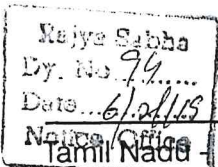 Rajya Sabha
Dy. No. 99
Date 6/2/15
Notice Office
Tamil Nadu -